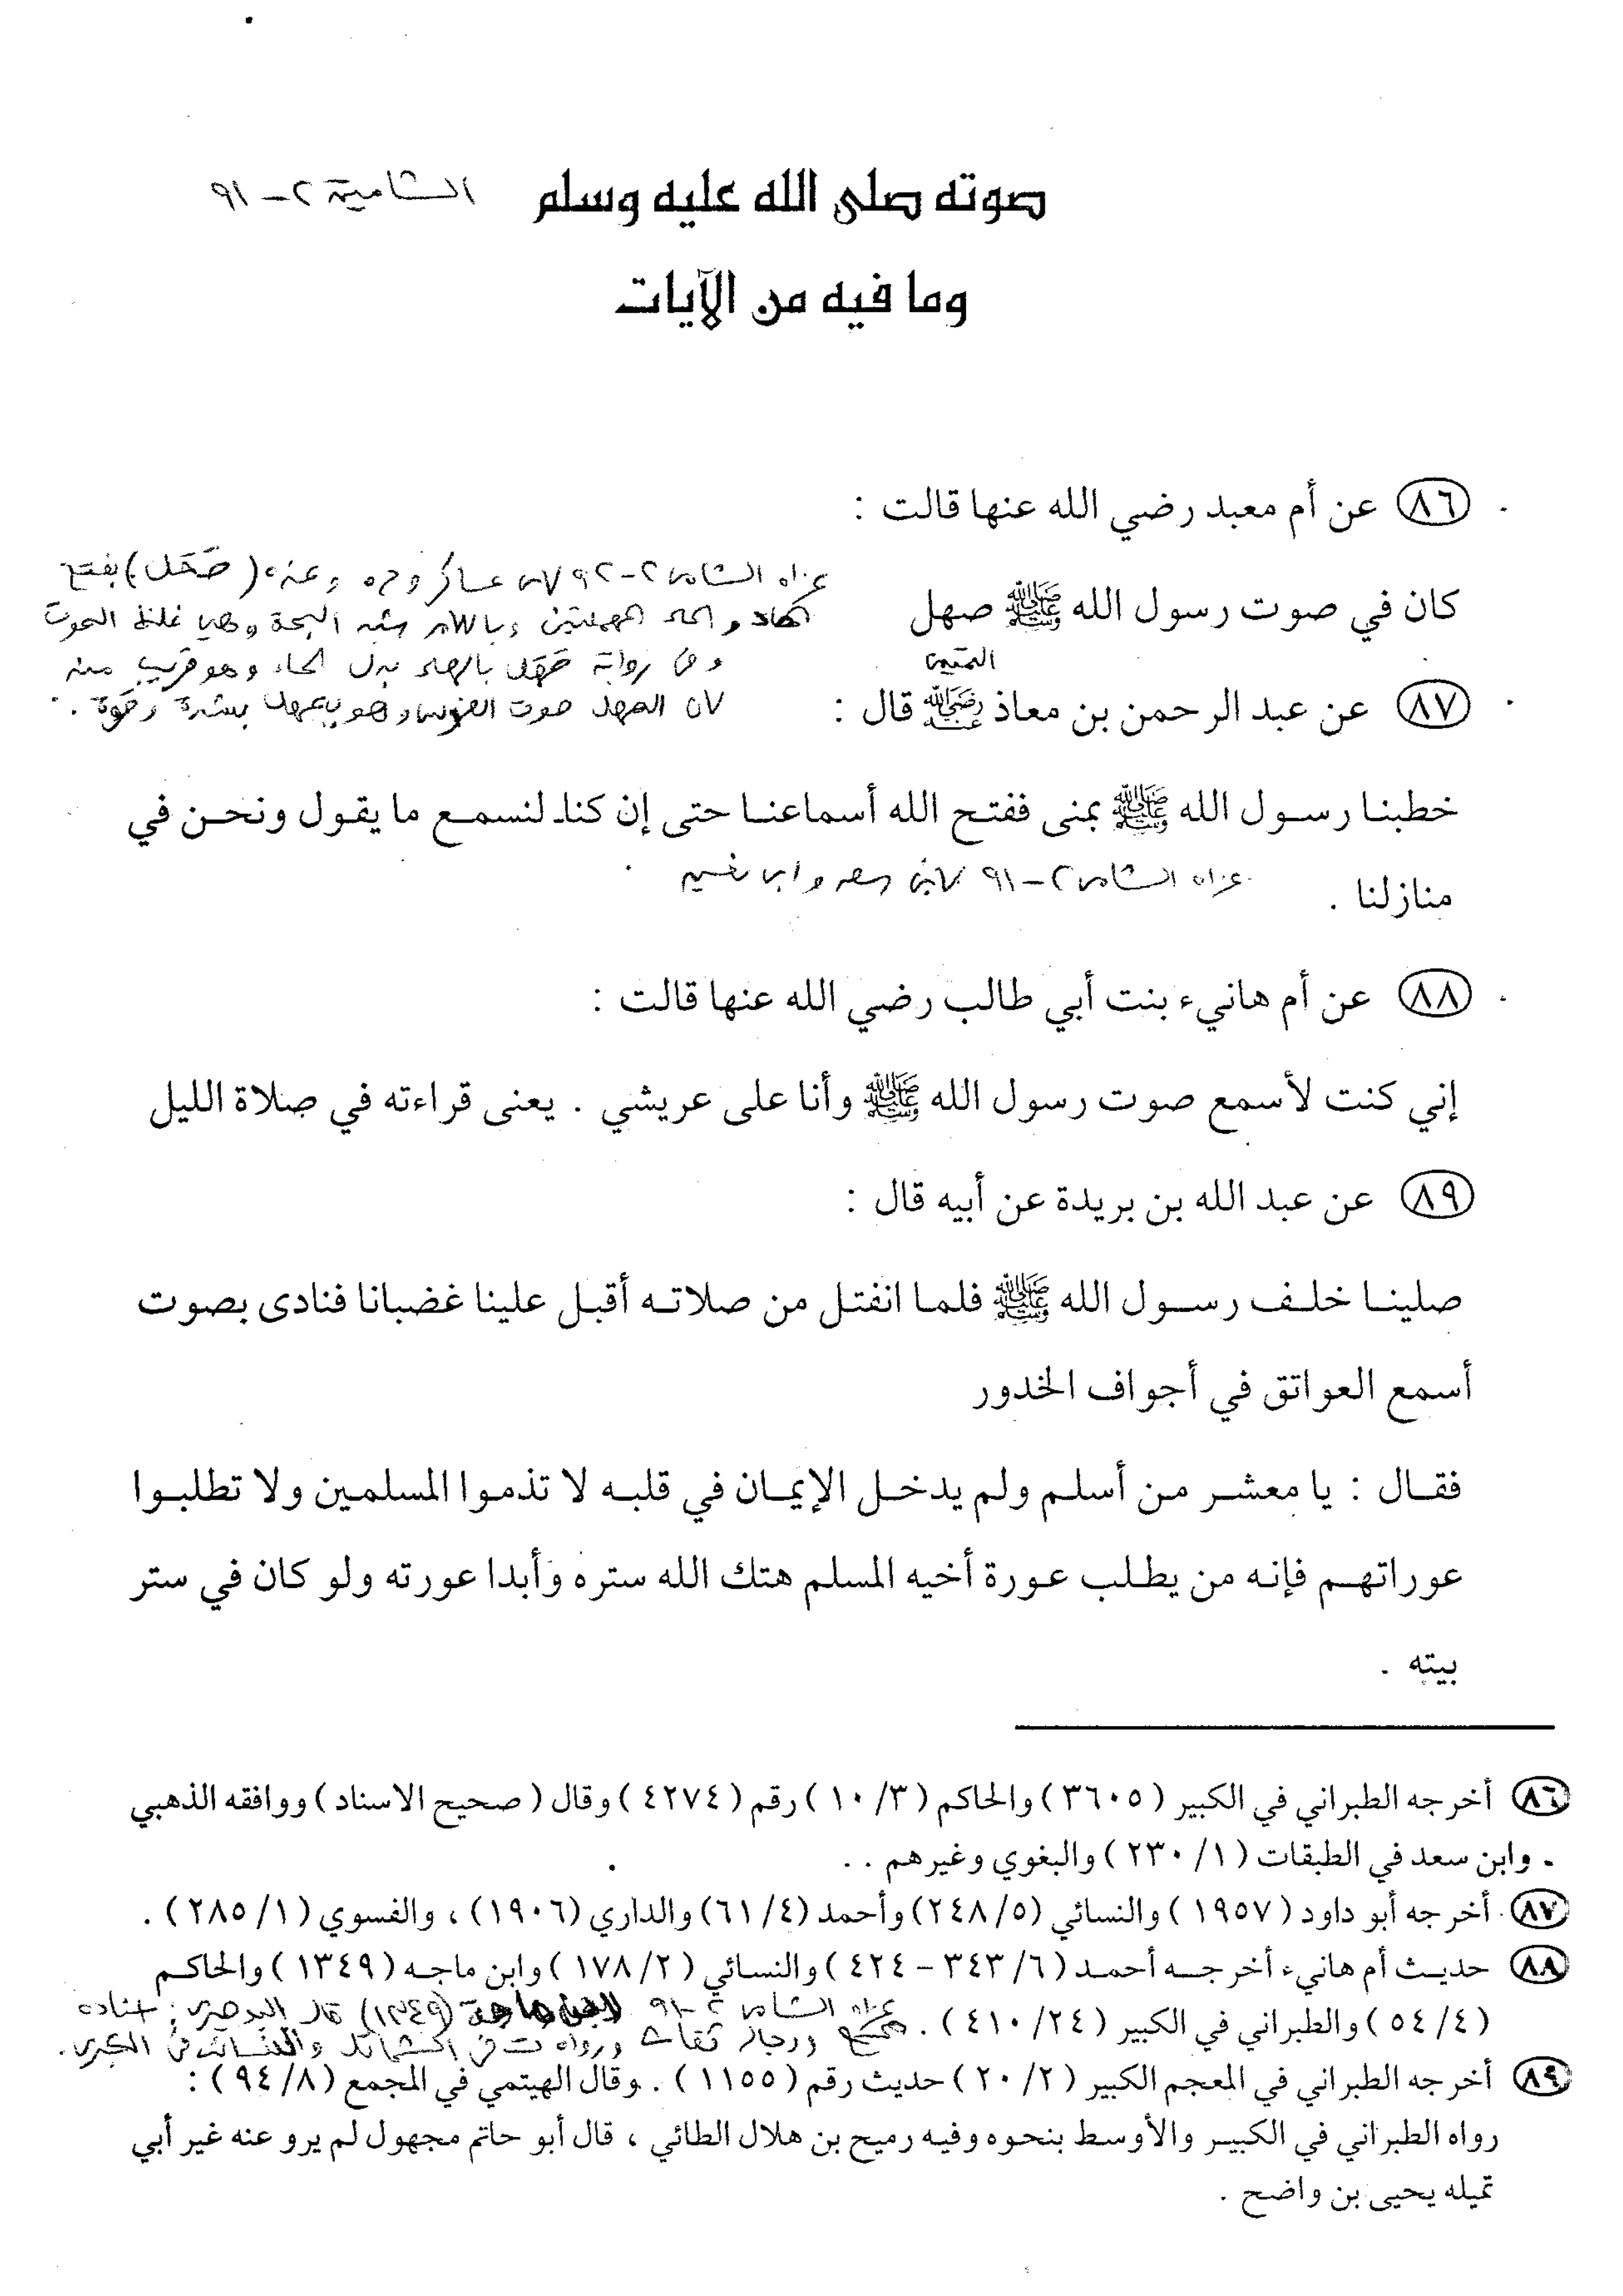 صوته صلى الله عليه وسلم الشامية ٢ – ٩١
وما فيه من الآيات
٨٦ عن أم معبد رضي الله عنها قالت :
عزاه الشامي ٢ – ٩٢ لابن عساكر وعنده (صَحَل) بفتح
كان في صوت رسول الله ﷺ صهل
الصاد والحاء المهملتين وباللام شبه البحة وهي غلظ الصوت
وفي رواية صَهَل بالهاء بدل الحاء وهو قريب منه
التيمي
٨٧ عن عبد الرحمن بن معاذ رضي الله عنه قال :
لأن الصهل صوت الفرس وهو يصهل بشدة وقوة .
خطبنا رسول الله ﷺ بمنى ففتح الله أسماعنا حتى إن كنا لنسمع ما يقول ونحن في
منازلنا .
عزاه الشامي ٢ – ٩١ لابن سعد وابي نعيم
٨٨ عن أم هانيء بنت أبي طالب رضي الله عنها قالت :
إني كنت لأسمع صوت رسول الله ﷺ وأنا على عريشي . يعنى قراءته في صلاة الليل
٨٩ عن عبد الله بن بريدة عن أبيه قال :
صلينا خلف رسول الله ﷺ فلما انفتل من صلاته أقبل علينا غضبانا فنادى بصوت
أسمع العواتق في أجواف الخدور
فقال : يا معشر من أسلم ولم يدخل الإيمان في قلبه لا تذموا المسلمين ولا تطلبوا
عوراتهم فإنه من يطلب عورة أخيه المسلم هتك الله ستره وأبدا عورته ولو كان في ستر
بيته .
٨٦ أخرجه الطبراني في الكبير ( ٣٦٠٥ ) والحاكم ( ١٠/٣ ) رقم ( ٤٢٧٤ ) وقال ( صحيح الاسناد ) ووافقه الذهبي
- وابن سعد في الطبقات ( ٢٣٠/١ ) والبغوي وغيرهم . .
٨٧ أخرجه أبو داود ( ١٩٥٧ ) والنسائي (٢٤٨/٥) وأحمد (٦١/٤) والداري (١٩٠٦) ، والفسوي ( ٢٨٥/١ ) .
٨٨ حديث أم هانيء أخرجه أحمد ( ٣٤٣/٦ – ٤٢٤ ) والنسائي ( ١٧٨/٢ ) وابن ماجه ( ١٣٤٩ ) والحاكم
عزاه الشامي ٢ – ٩١ لابن ماجة (١٣٤٩) قال البوصيري : اسناده
( ٥٤/٤ ) والطبراني في الكبير ( ٤١٠/٢٤ ) .
صحيح ورجاله ثقات ورواه ت في الشمائل والنسائي في الكبرى .
٨٩ أخرجه الطبراني في المعجم الكبير ( ٢٠/٢ ) حديث رقم ( ١١٥٥ ) . وقال الهيتمي في المجمع ( ٩٤/٨ ) :
رواه الطبراني في الكبير والأوسط بنحوه وفيه رميح بن هلال الطائي ، قال أبو حاتم مجهول لم يرو عنه غير أبي
تميله يحيى بن واضح .